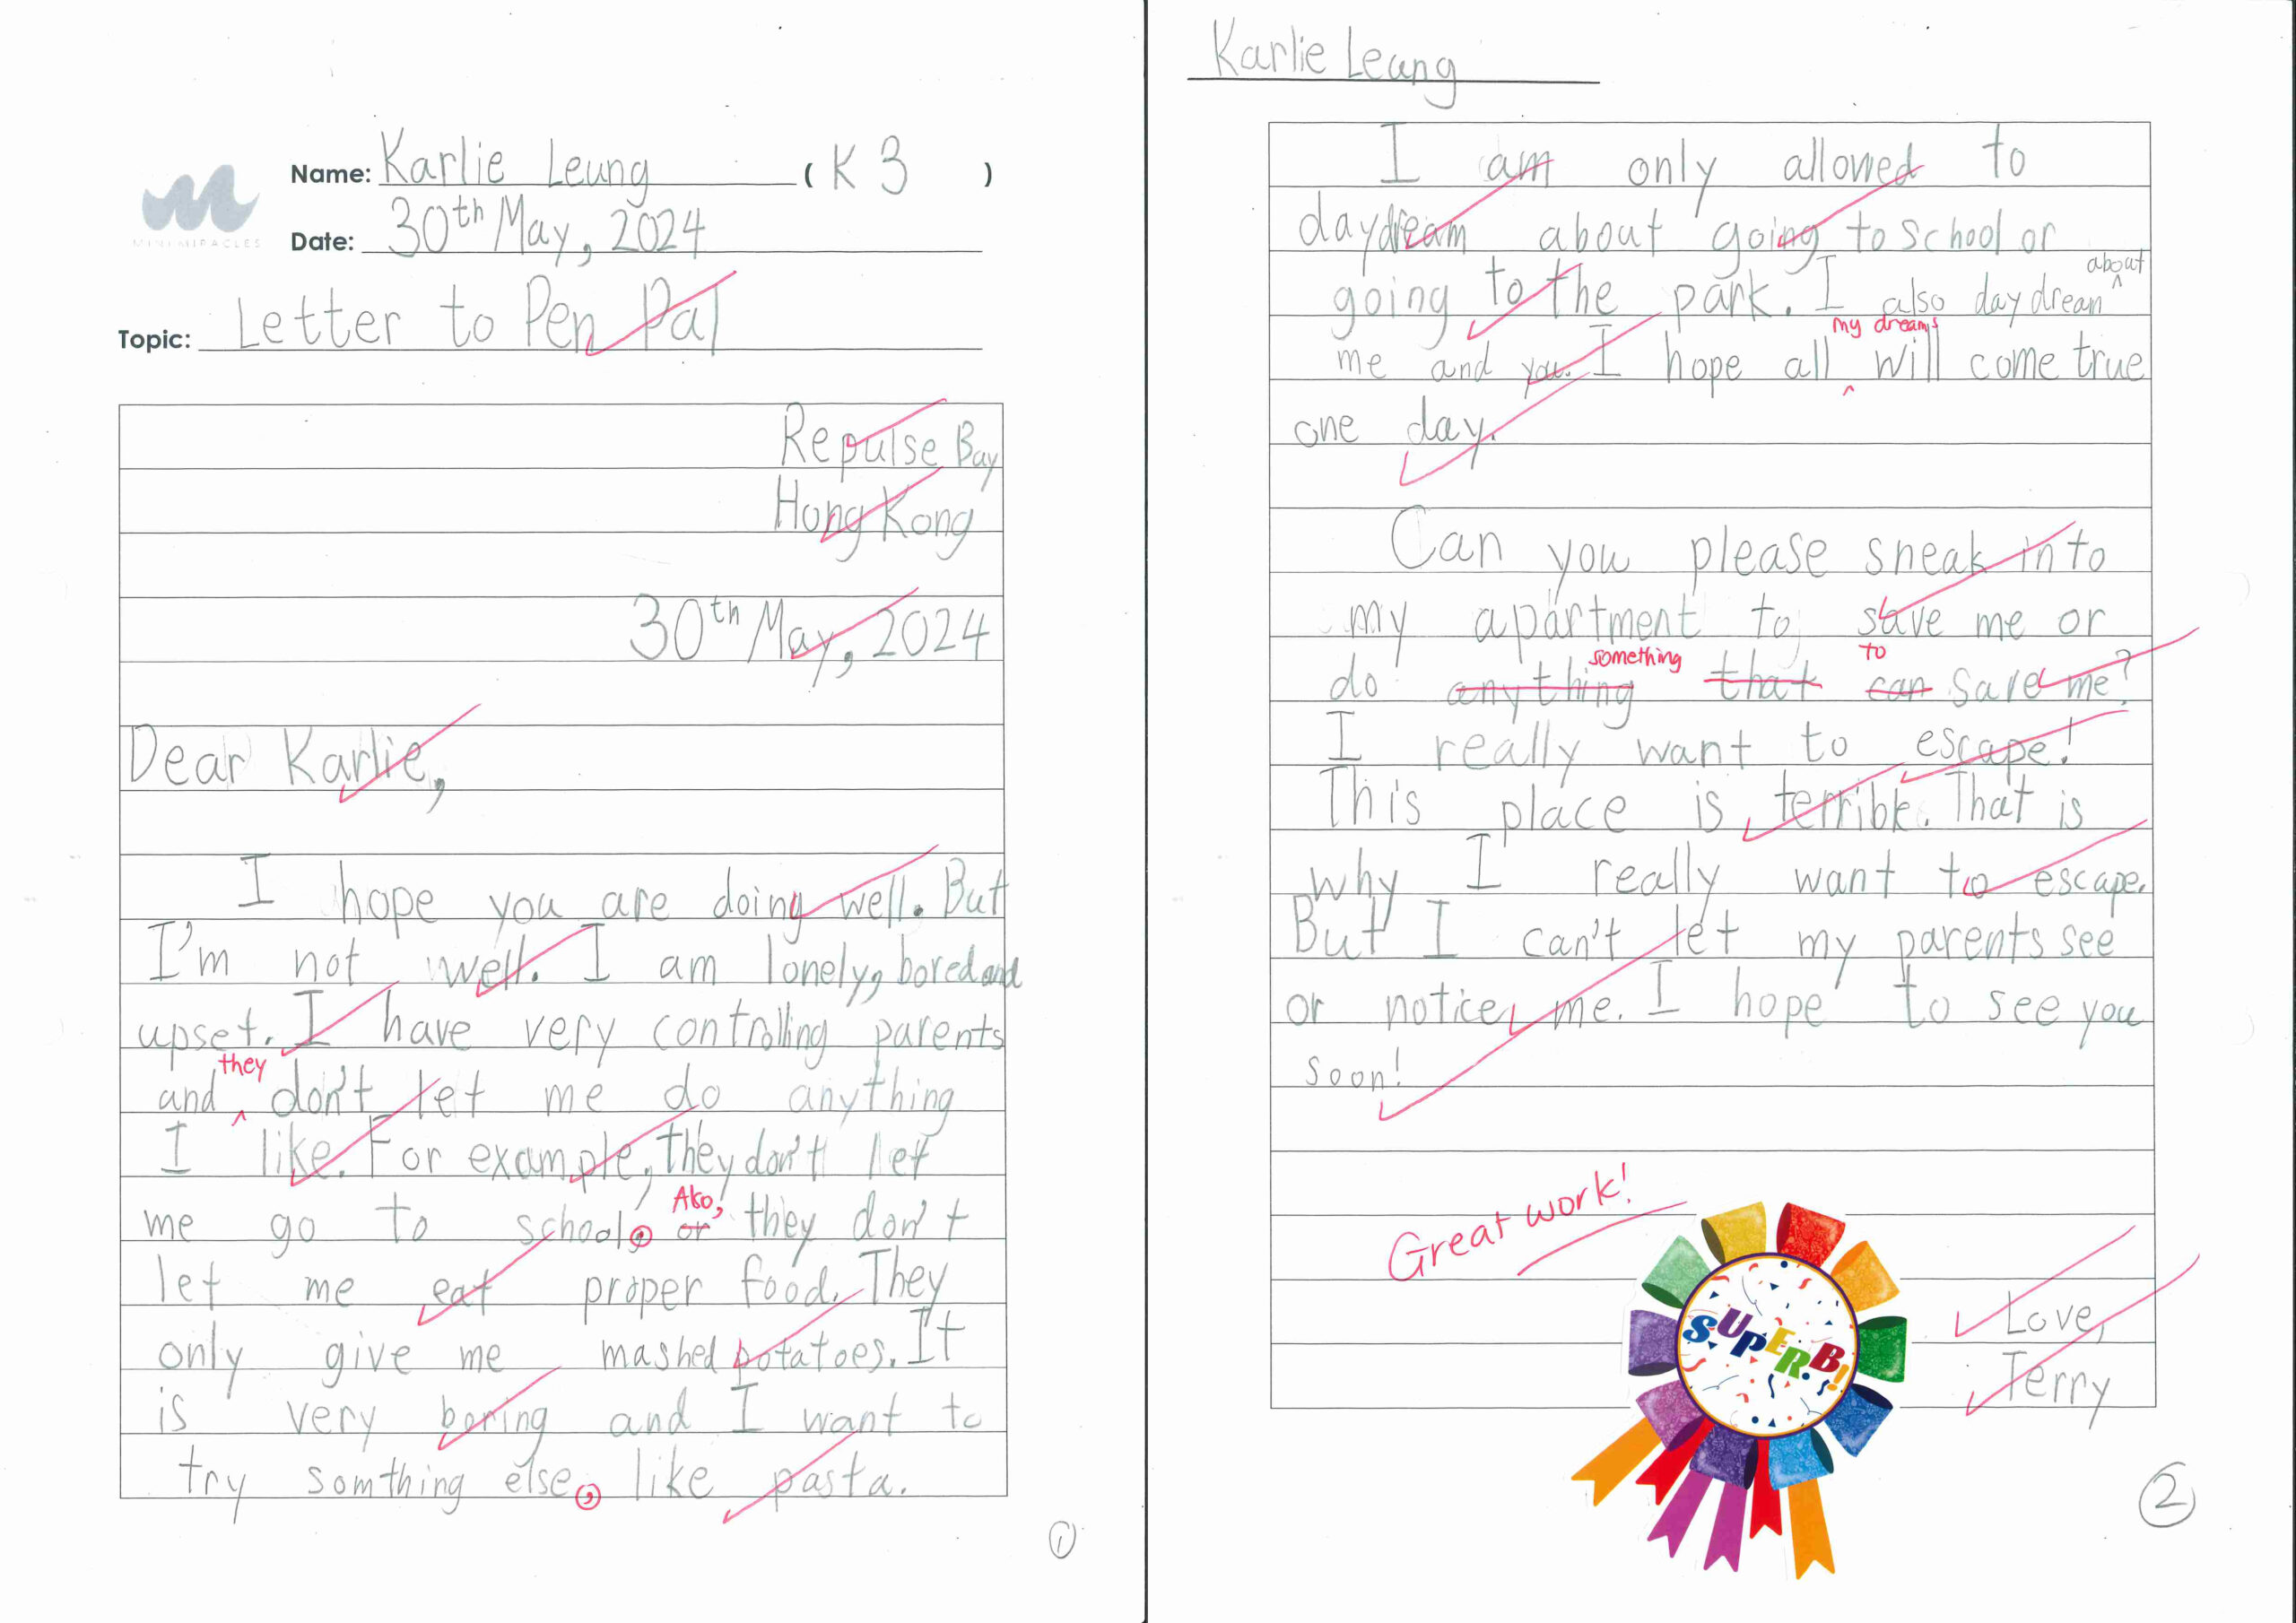 Name: Karlie Leung ( K 3 )
MINI MIRACLES
Date: 30th May, 2024
Topic: Letter to Pen Pal
Repulse Bay
Hong Kong
30th May, 2024
Dear Karlie,
I hope you are doing well. But
I'm not well. I am lonely, bored and
upset. I have very controlling parents
and they don't let me do anything
I like. For example, they don't let
me go to school. or Also, they don't
let me eat proper food. They
only give me mashed potatoes. It
is very boring and I want to
try somthing else, like pasta.
1
Karlie Leung
I am only allowed to
daydream about going to school or
going to the park. I also daydream about
me and you. I hope all my dreams will come true
one day.
Can you please sneak into
my apartment to save me or
do anything something that can to save me?
I really want to escape!
This place is terrible. That is
why I really want to escape.
But I can't let my parents see
or notice me. I hope to see you
soon!
Great work!
SUPERB!
Love,
Terry
2